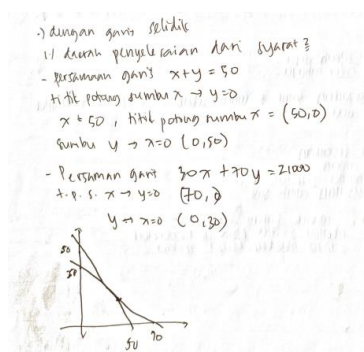 .) dengan garis selidik
1./ daerah penyelesaian dari syarat²
- persamaan garis x+y = 50
titik potong sumbu x → y=0
x = 50, titik potong sumbu x = (50,0)
sumbu y → x=0 (0,50)
- Persamaan garis 30x + 70y = 21000
t.p.s. x → y=0 (70,0)
y → x=0 (0,30)
50
30
50 70